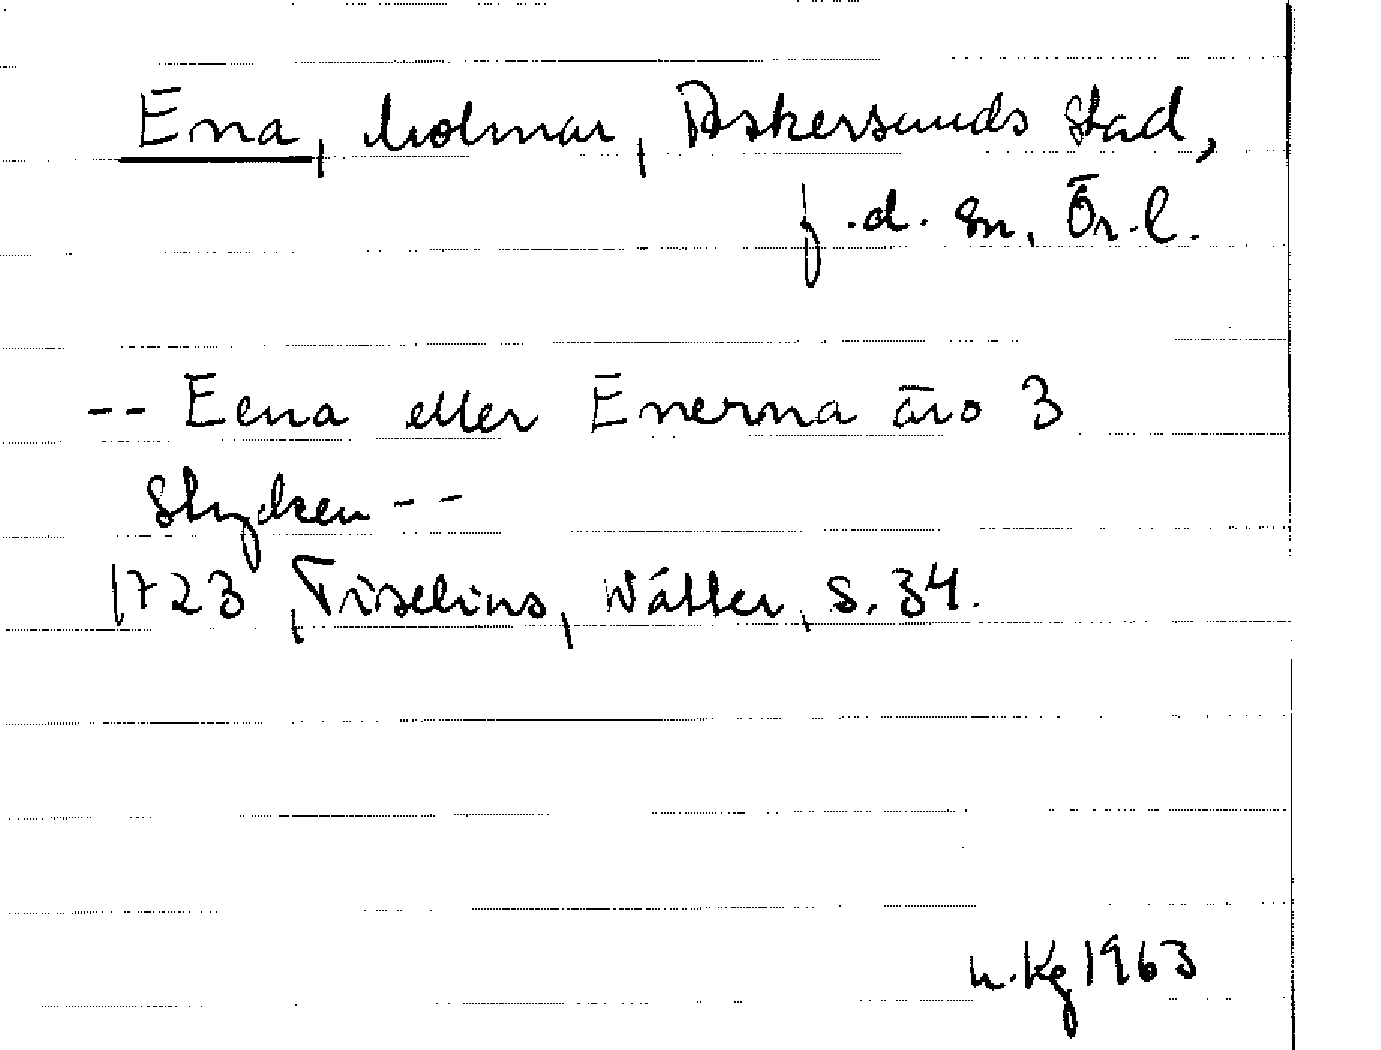 Ena, holmar, Askersunds stad,
f.d. sn, Ör.l.
-- Eena eller Enerna äro 3
Stycken --
1723, Tiselius, Wätter, s. 34.
Kg 1963